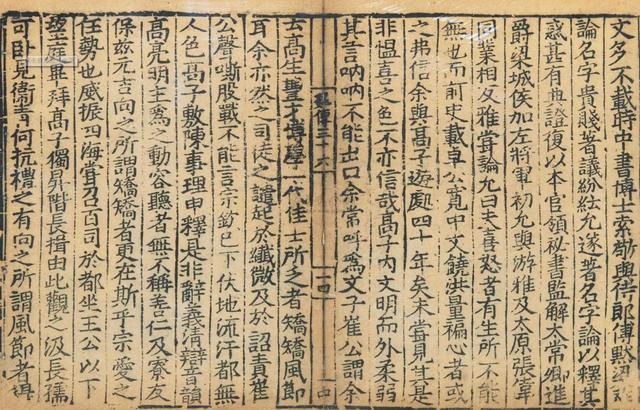 文多不載時中書博士索敞與侍郎傅默梁祚
論名字貴賤著議紛紜允遂著名字論以釋其
惑甚有典證復以本官領祕書監解太常卿進
爵梁城侯加左將軍初允與游雅及太原張偉
同業相友雅嘗論允曰夫喜怒者有生所不能
無也而前史載卓公寬中文饒洪量褊心者或
之弗信余與高子遊處四十年矣未嘗見其是
非慍喜之色不亦信哉高子內文明而外柔弱
其言吶吶不能出口余常呼爲文子崔公謂余
傳三十六
十四
云高生豐才博學一代佳士所乏者矯矯風節
耳余亦然之司徒之譴起於纖微及於詔責崔
公聲嘶股戰不能言宗欽已下伏地流汗都無
人色高子敷陳事理申釋是非辭義清辯音韻
高亮明主爲之動容聽者無不稱善仁及寮友
保茲元吉向之所謂矯矯者更在斯乎宗愛之
任勢也威振四海嘗召百司於都坐王公以下
望庭畢拜高子獨昇階長揖由此觀之汲長孺
可臥見衛青何抗禮之有向之所謂風節者